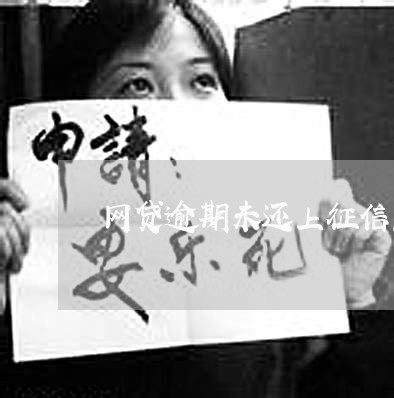 申請：
网贷逾期未还上征信
安乐死